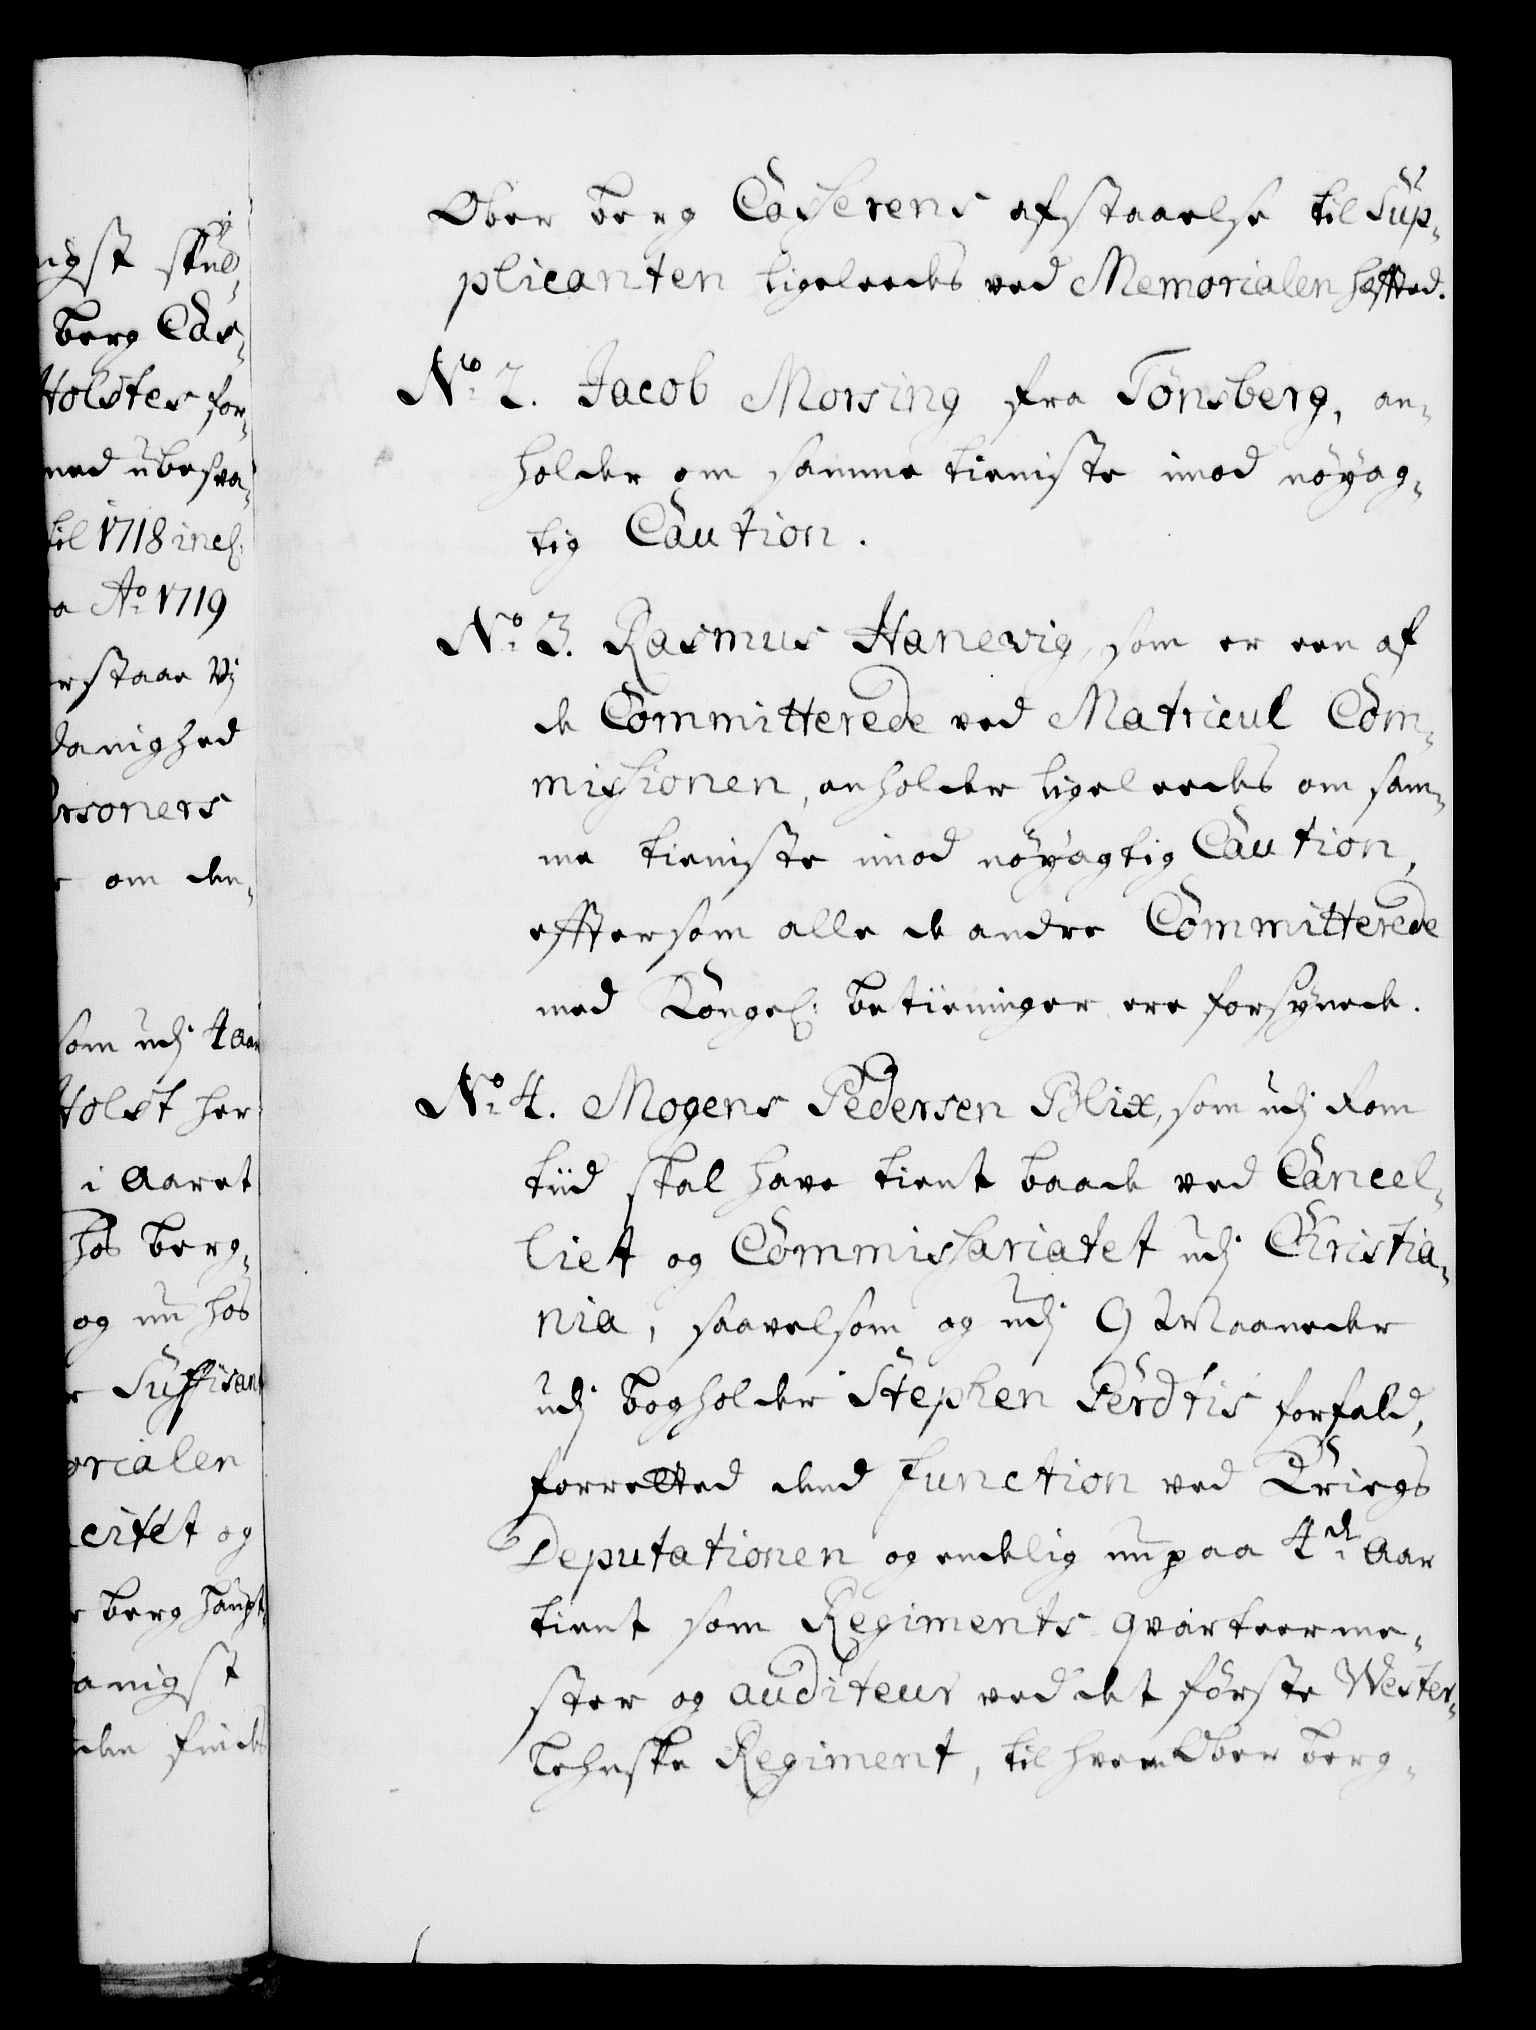 ngst skul¬
berg Cas¬
Holstes for¬
med ubesva¬
til 1718 incl:
a Ao 1719
rstaae Vj
danighed
ersoners
om den¬
som udj 4 Aar
Holst her
i Aaret
hos berg¬
og nu hos
r Suffisan
orialen
citet og
r berg haupt¬
anigst
den finds
Ober berg Casserens afstaaelse til Sup¬
plicanten ligeleedes ved Memorialen heffted.
No. 2. Jacob Morsing fra Tønsberg, an¬
holder om samme tieniste imod nøyag¬
tig Caution.
No. 3. Rasmus Hanevig, som er een af
de Committerede ved Matricul Com¬
missionen, anholder ligeleedes om sam¬
me tieniste imod nøyagtig Caution,
efftersom alle de andre Committerede
med Kongel: betieninger ere forsynede.
No. 4. Mogens Pedersen Blix, som udj kom
tiid skal have tient baade ved Cancel¬
liet og Commissariatet udj Christia¬
nia, saavelsom og udj 9 Maaneder
udj bogholder Stephen Perdtis forfald,
forretted dend Function ved Kriegs
Deputationen og endelig nu paa 4de Aar
tient som Regiments qvarteerme¬
ster og auditeur ved det første Wester¬
lehnske Regiment, til hvem Ober berg¬